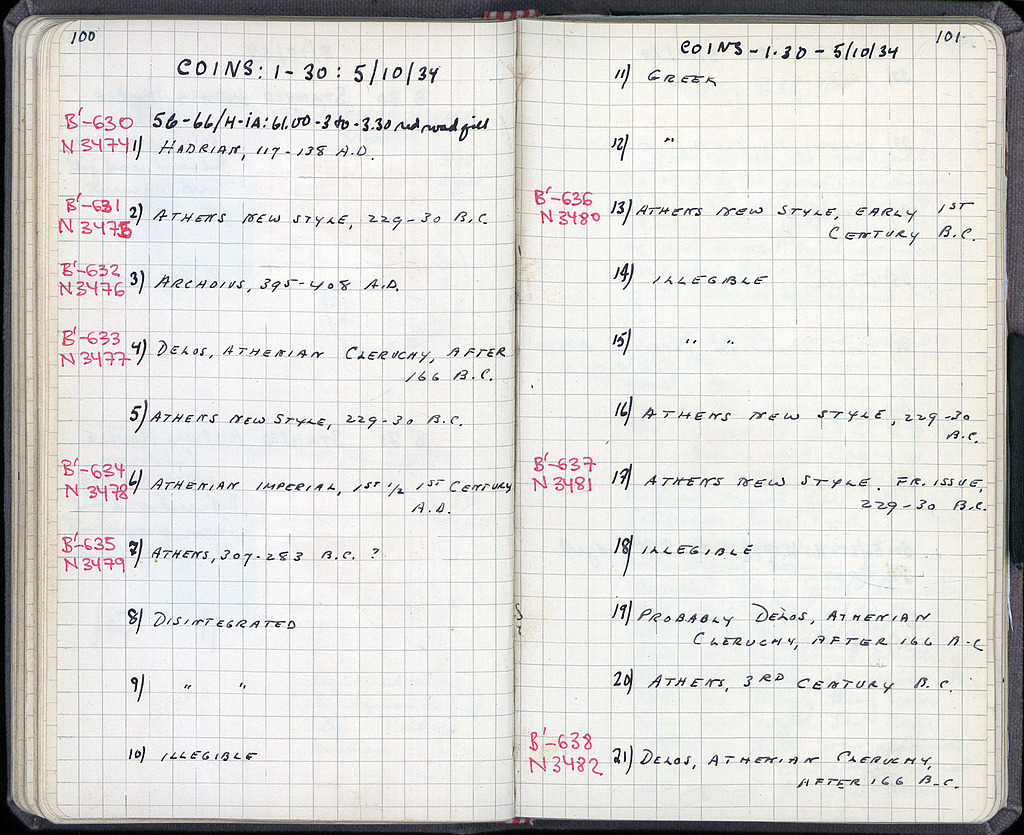 100
COINS: 1-30: 5/10/34
B'-630 56-66/H-IA: 61.00-3.30 red road fill
N3474 1) HADRIAN, 117-138 A.D.
B'-631
N3475 2) ATHENS NEW STYLE, 229-30 B.C
B'-632
N3476 3) ARCHDIUS, 395-408 A.D.
B'-633
N3477 4) DELOS, ATHENIAN CLERUCHY, AFTER
166 B.C.
5) ATHENS NEW STYLE, 229-30 B.C.
B'-634
N3478 6) ATHENIAN IMPERIAL, 1ST 1/2 1ST CENTURY
A.D.
B'-635
N3479 7) ATHENS, 307-283 B.C. ?
8) DISINTEGRATED
9) " "
10) ILLEGIBLE
101
COINS-1-30-5/10/34
11) GREEK
12) "
B'-636
N3480 13) ATHENS NEW STYLE, EARLY 1ST
CENTURY B.C.
14) ILLEGIBLE
15) " "
16) ATHENS NEW STYLE, 229-30
B.C.
B'-637
N3481 17) ATHENS NEW STYLE. FR. ISSUE,
229-30 B.C.
18) ILLEGIBLE
19) PROBABLY DELOS, ATHENIAN
CLERUCHY, AFTER 166 B.C
20) ATHENS, 3RD CENTURY B.C.
B'-638
N3482 21) DELOS, ATHENIAN CLERUCHY,
AFTER 166 B.C.